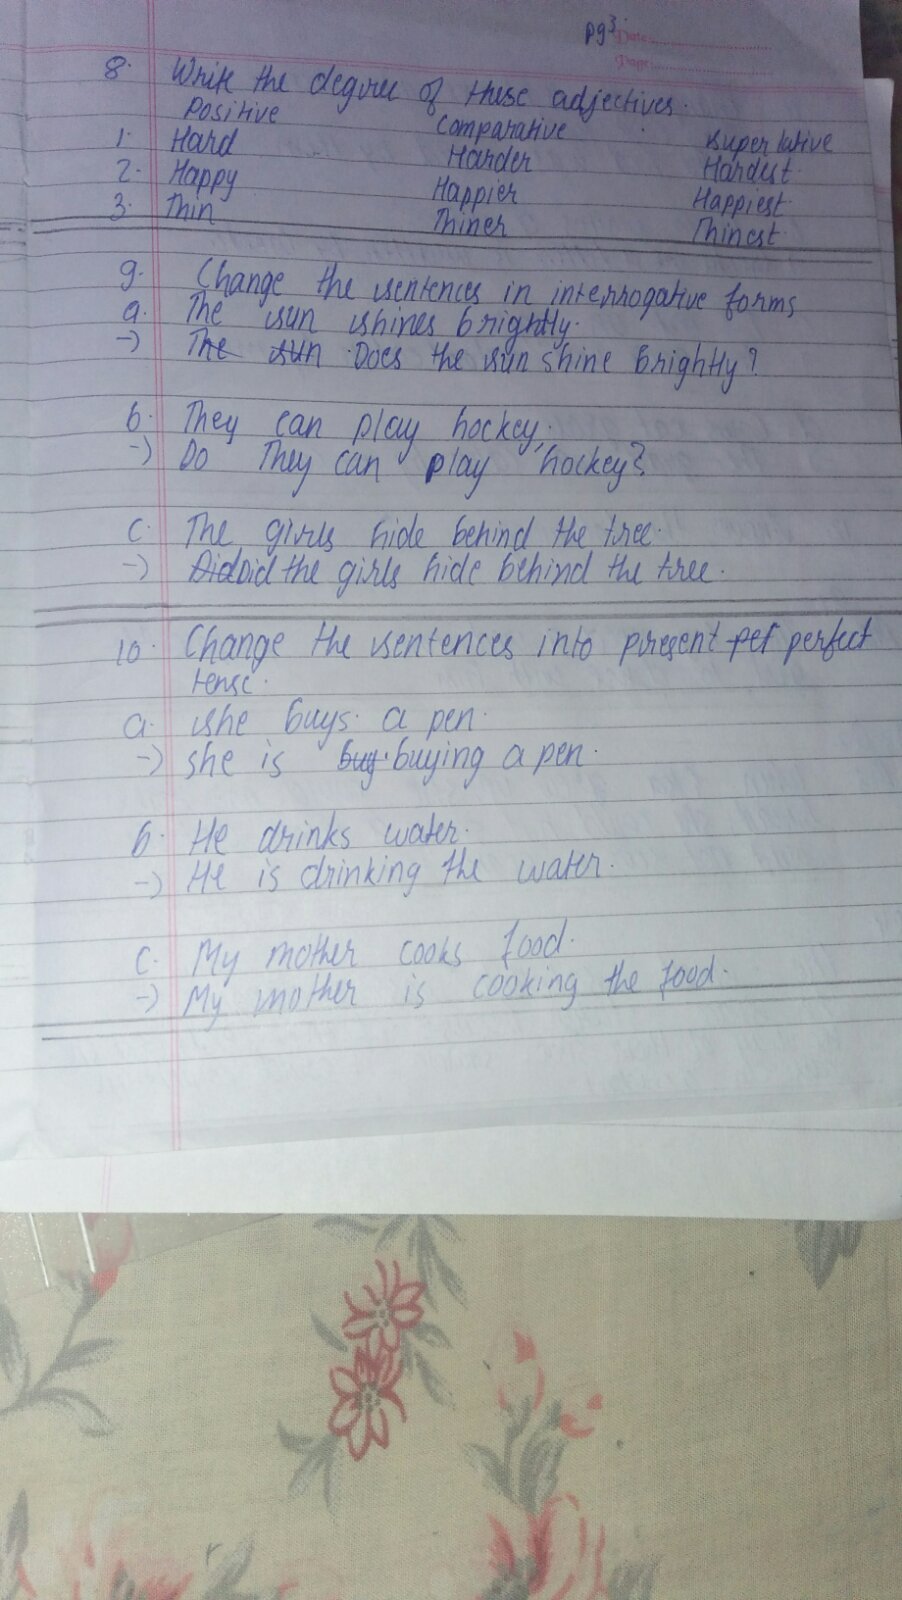 pg 3 Date
Page
8. Write the degree of these adjectives.
Positive Comparative Superlative
1. Hard Harder Hardest.
2. Happy Happier Happiest.
3. Thin Thiner Thinest.
9. Change the sentences in interrogative forms
a. The sun shines brightly.
-) The sun Does the sun shine brightly?
b. They can play hockey.
-) Do They can play hockey?
c. The girls hide behind the tree.
-) Did Did the girls hide behind the tree.
10. Change the sentences into present per perfect
tense.
a. she buys a pen.
-) she is buy buying a pen.
b. He drinks water.
-) He is drinking the water.
c. My mother cooks food.
-) My mother is cooking the food.